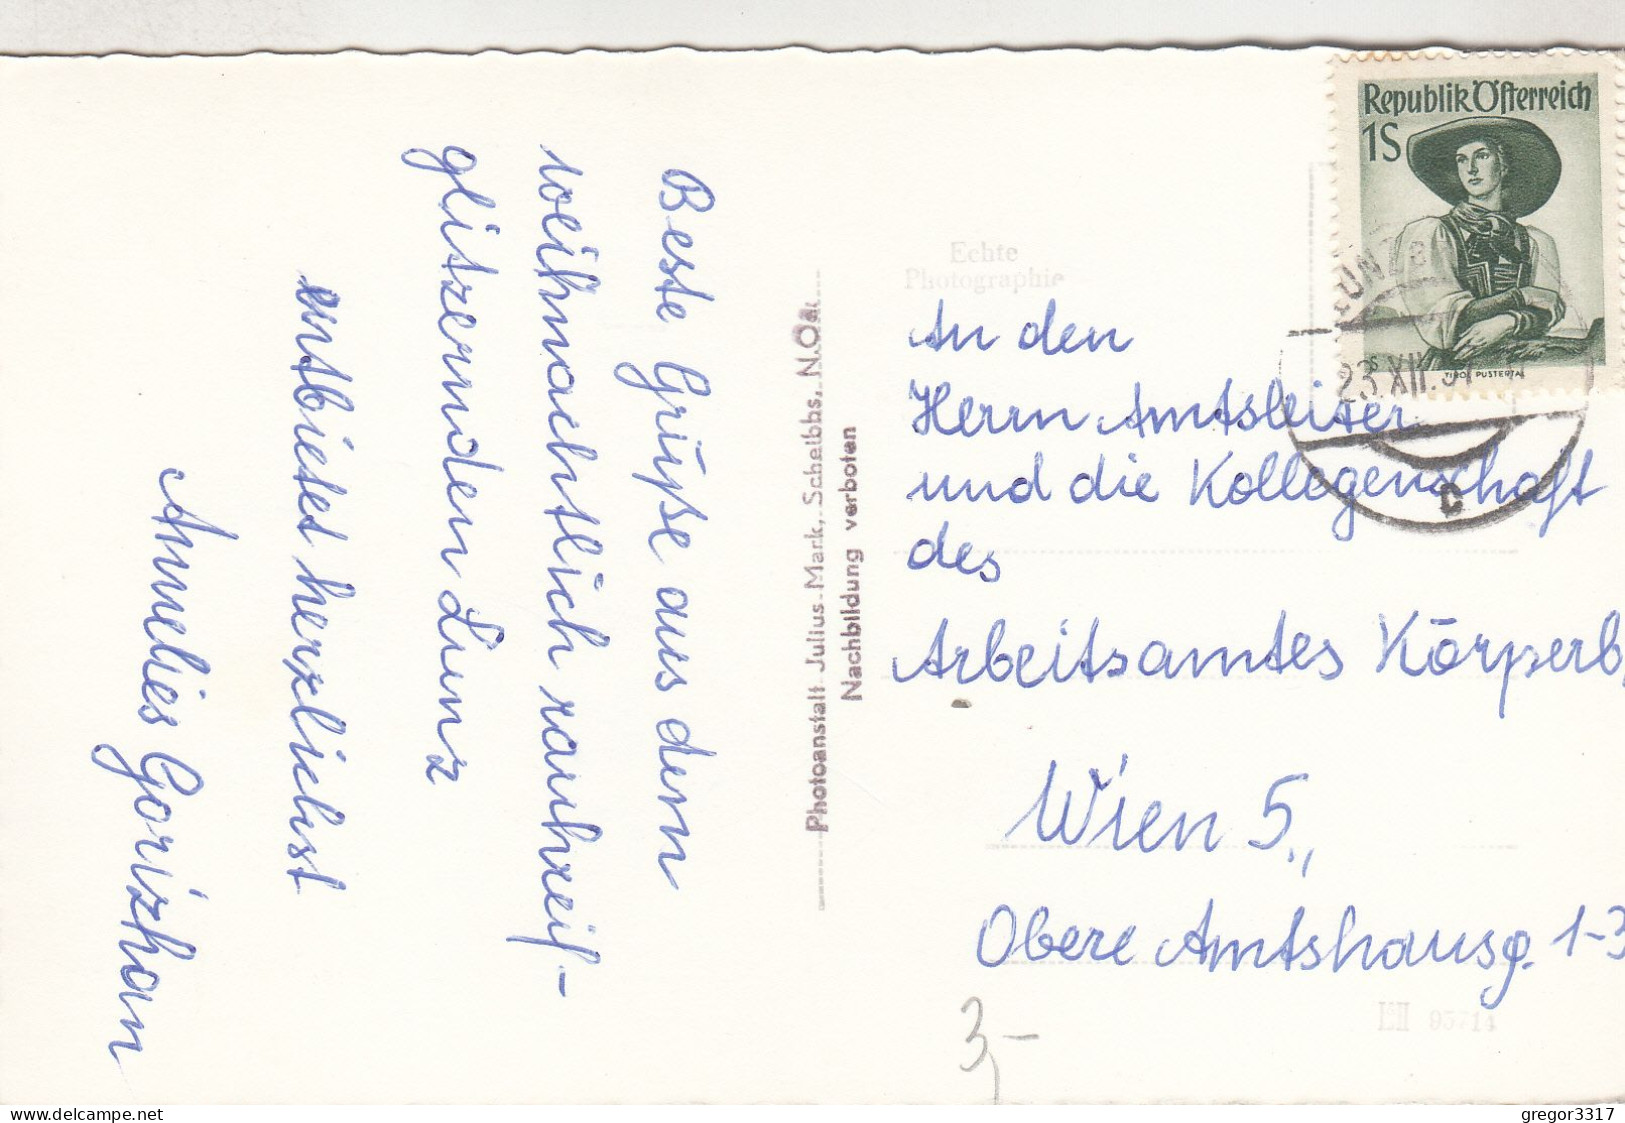 Beste Grüße aus dem
weihnachtlich rauhreif-
glitzernden Lunz
entbietet herzlichst
Annelies
Photoanstalt Julius Mark, Scheibbs, N.Ö.
Nachbildung verboten
Echte
Photographie
Republik Österreich
1S
TIROL PUSTERTAL
LUNZ
23.XII.
C
An den
Herrn Amtsleiter
und die Kollegenschaft
des
Arbeitsamtes Körperb.
Wien 5.,
Obere Amtshausg. 1-3
95714
3,-
gregor3317